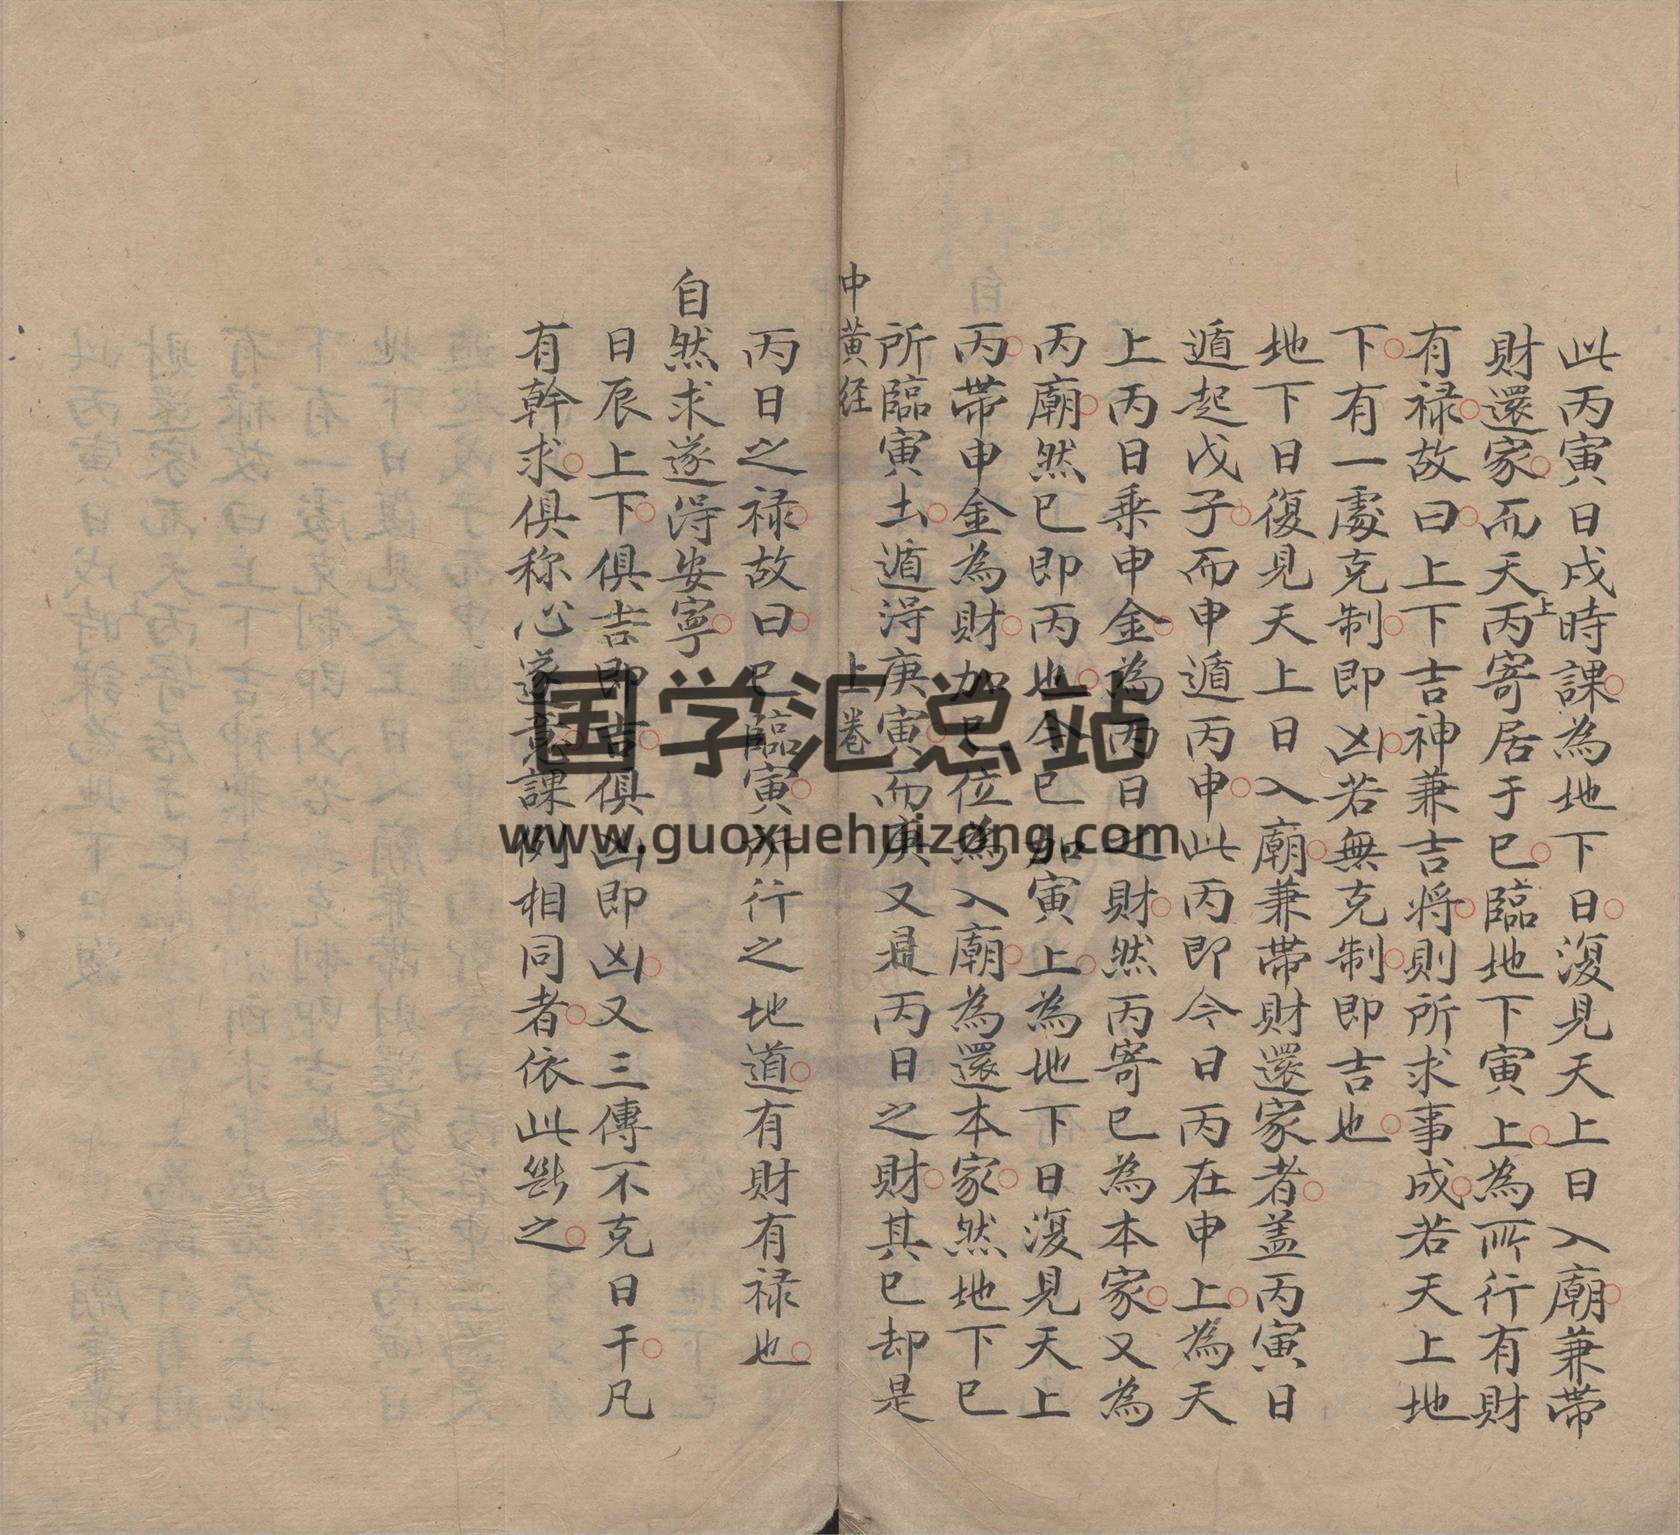 此丙寅日戌時課為地下日復見天上日入廟兼帶
財還家而天上丙寄居于巳臨地下寅上為所行有財
有禄故曰上下吉神兼吉将則所求事成若天上地
下有一處克制即凶若無克制即吉也
地下日復見天上日入廟兼帶財還家者盖丙寅日
遁起戊子而申遁丙申此丙即今日丙在申上為天
上丙日乗申金為丙日之財然丙寄巳為本家又為
丙廟然巳即丙也今巳加寅上為地下日復見天上
丙帶申金為財加巳位為入廟為還本家然地下巳
所臨寅土遁得庚寅而庚又是丙日之財其巳却是
中黄经 上卷
丙日之禄故曰巳臨寅所行之地道有財有禄也
自然求遂得安寧
日辰上下俱吉即吉俱凶即凶又三傳不克日干凡
有幹求俱称心遂意課例相同者依此断之
国学汇总站
www.guoxuehuizong.com